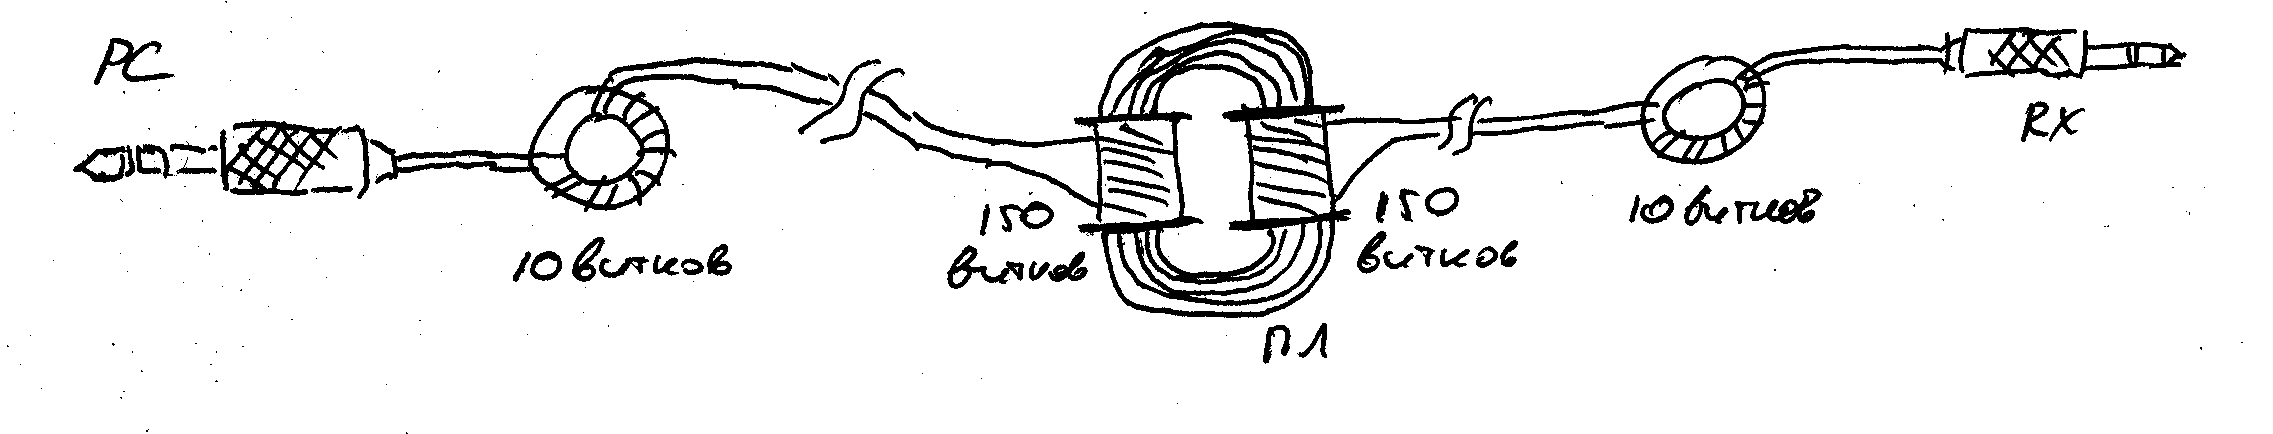 PC
RX
10 витков
150
витков
150
витков
10 витков
ПЛ